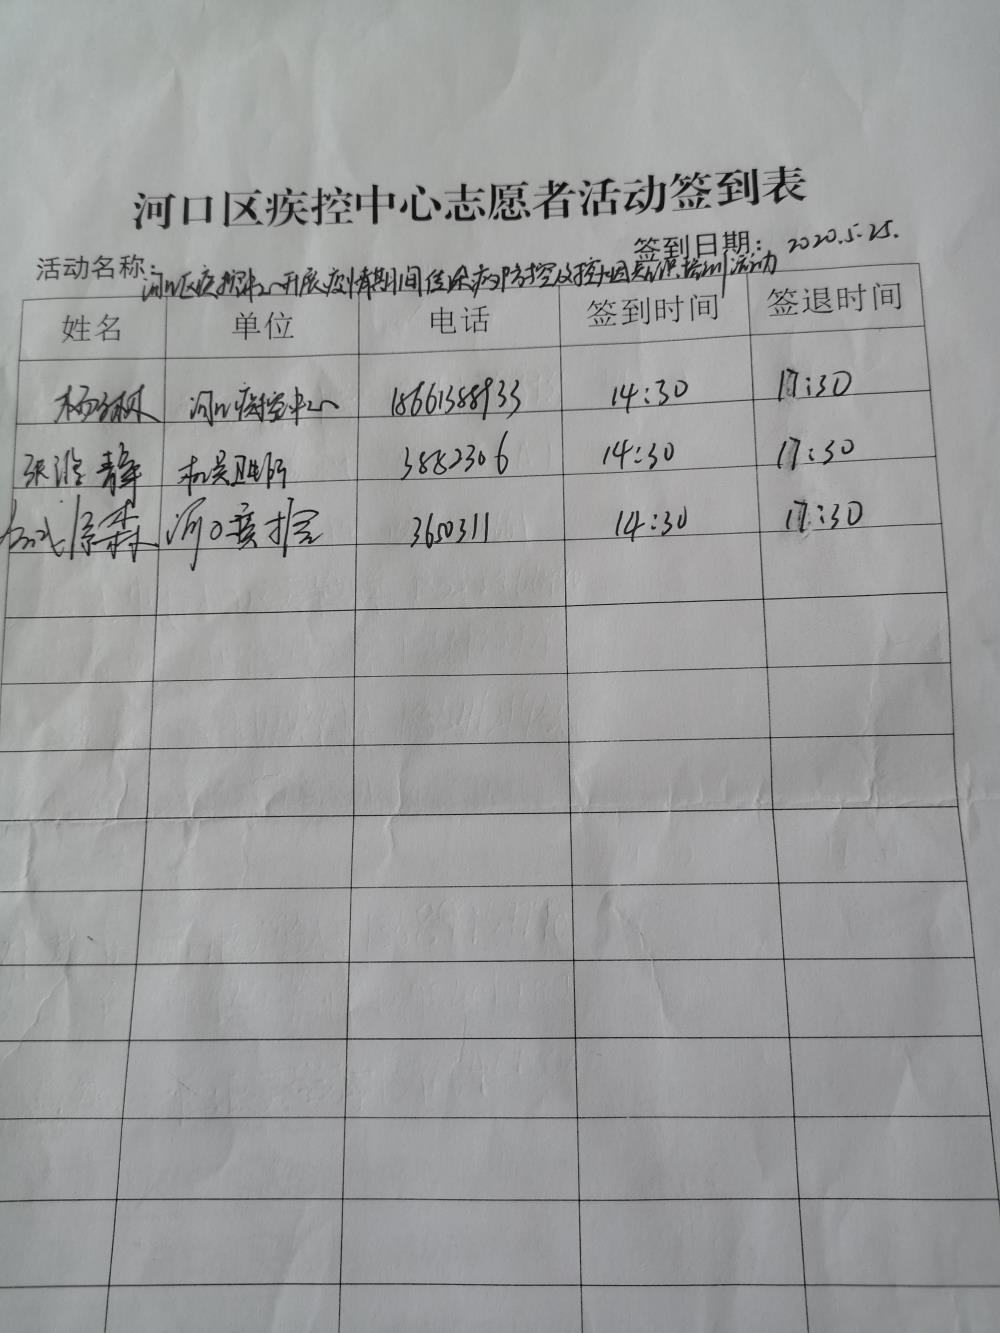 河口区疾控中心志愿者活动签到表
签到日期：2020.5.25.
活动名称：河口区疾控中心开展疫情期间传染病防控及控烟知识培训活动
姓名 单位 电话 签到时间 签退时间
河口疾控中心 18661388933 14:30 17:30
张 静 3882306 14:30 17:30
森 河口疾控 3650311 14:30 17:30